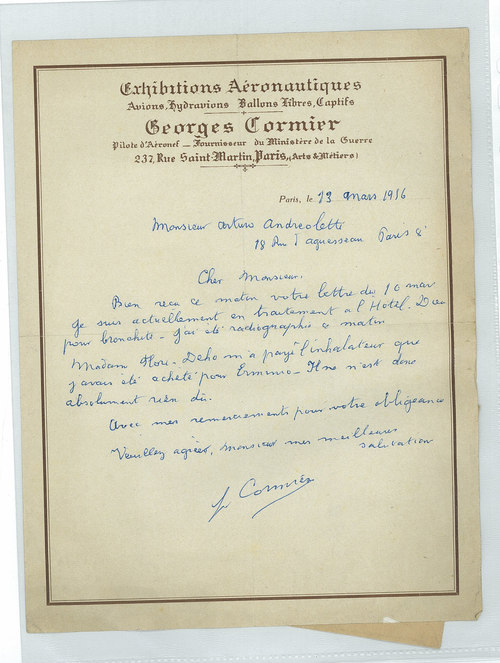 Exhibitions Aéronautiques
Avions, Hydravions Ballons Libres, Captifs
Georges Cormier
Pilote d'Aéronef — Fournisseur du Ministère de la Guerre
237, Rue Saint-Martin, Paris, (Arts & Métiers)
Paris, le 13 mars 1916
Monsieur Arturo Andreoletti
18 Rue d'Aguesseau Paris 8e
Cher Monsieur.
Bien reçu ce matin votre lettre du 10 mars
Je suis actuellement en traitement a l'Hotel-Dieu
pour bronchite - j'ai été radiographié ce matin
Madame Flori-Deho m a payé l'inhalateur que
j'avais été acheté pour Erminio - Il ne n'est donc
absolument rien dû.
Avec mes remerciements pour votre obligeance
Veuillez agréer, Monsieur mes meilleures
salutation
G Cormier